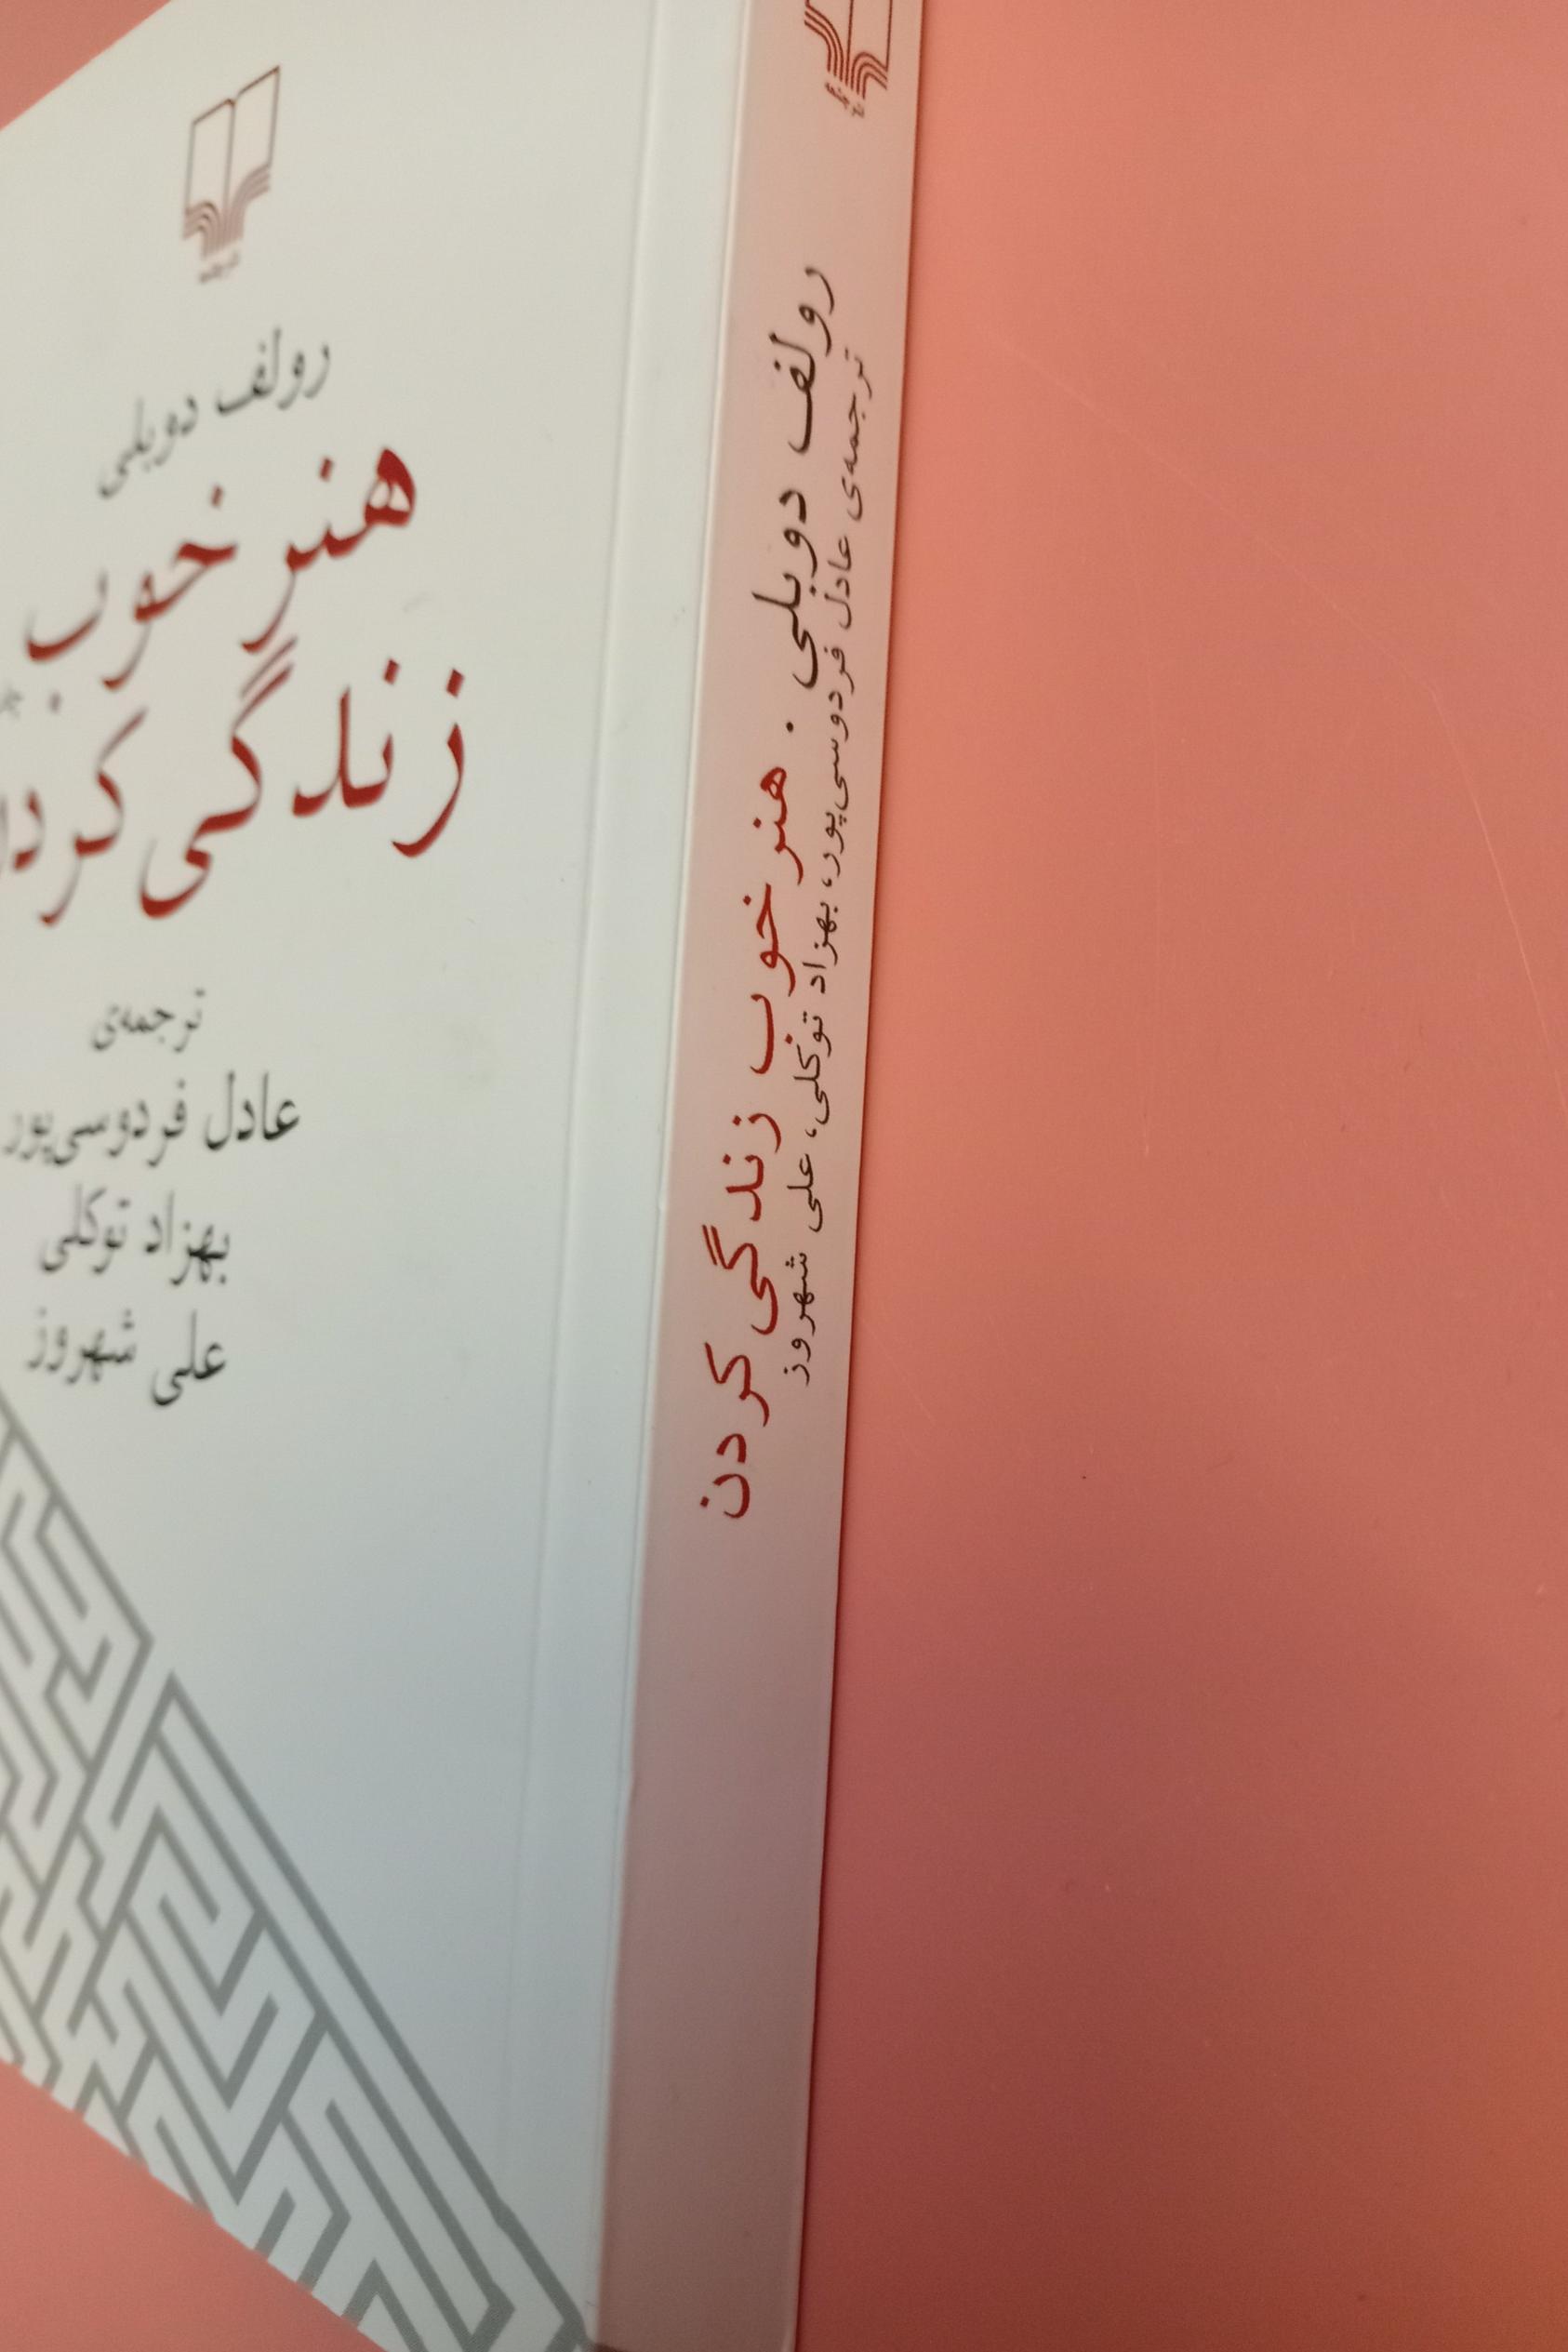 رولف دوبلی
هنر خوب
زندگی کردن
ترجمه‌ی
عادل فردوسی‌پور
بهزاد توکلی
علی شهروز
رولف دوبلی . هنر خوب زندگی کردن
ترجمه‌ی عادل فردوسی‌پور، بهزاد توکلی، علی شهروز